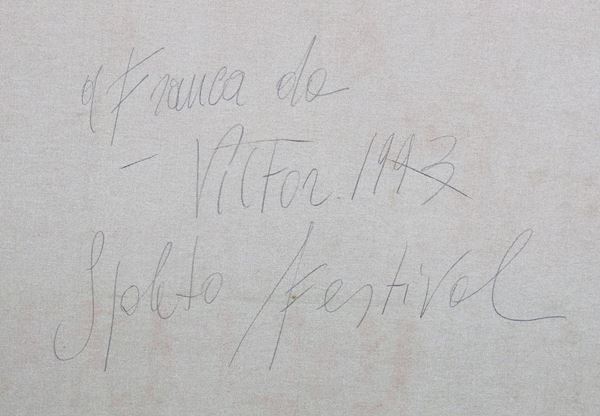 a Franca da
- Victor. 1993
Spoleto / Festival